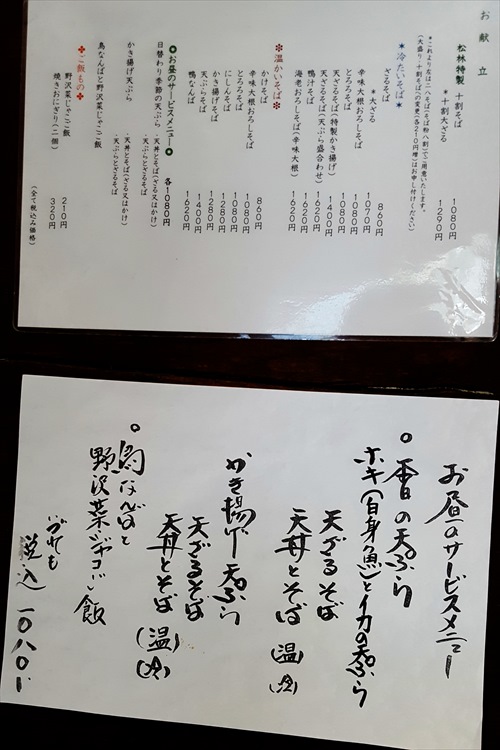 お献立
松林特製 十割そば 1080円
＊十割大ざる 1290円
＊これより左は二八そば(そば粉八割)でご用意いたします。
(大盛り・十割そばへの変更(各210円増)はお申し付けください)
＊冷たいそば＊
ざるそば 860円
＊大ざる 1070円
辛味大根おろしそば 1080円
とろろそば 1080円
天ざるそば(特製かき揚げ) 1400円
天ざるそば(天ぷら盛合わせ) 1620円
鴨汁そば 1620円
海老おろしそば(辛味大根) 1620円
＊温かいそば＊
かけそば 860円
辛味大根おろしそば 1080円
とろろそば 1080円
にしんそば 1280円
かき揚げそば 1280円
天ぷらそば 1400円
鴨なんそば 1620円
✪お昼のサービスメニュー✪ 各1080円
日替わり季節の天ぷら ・天丼とそば(ざる又はかけ)
・天ぷらとざるそば
かき揚げ天ぷら ・天丼とそば(ざる又はかけ)
・天ぷらとざるそば
鳥なんばと野沢菜じゃこご飯
✤ご飯もの✤
野沢菜じゃこご飯 210円
焼きおにぎり(二個) 320円
(全て税込み価格)
お昼のサービスメニュー
○本日の天ぷら
ホキ(白身魚)とイカの天ぷら
天ざるそば
天丼とそば(温)(冷)
かき揚げ天ぷら
天ざるそば
天丼とそば(温)(冷)
○鳥なんばと
野沢菜ジャコご飯
いずれも
税込一〇八〇円